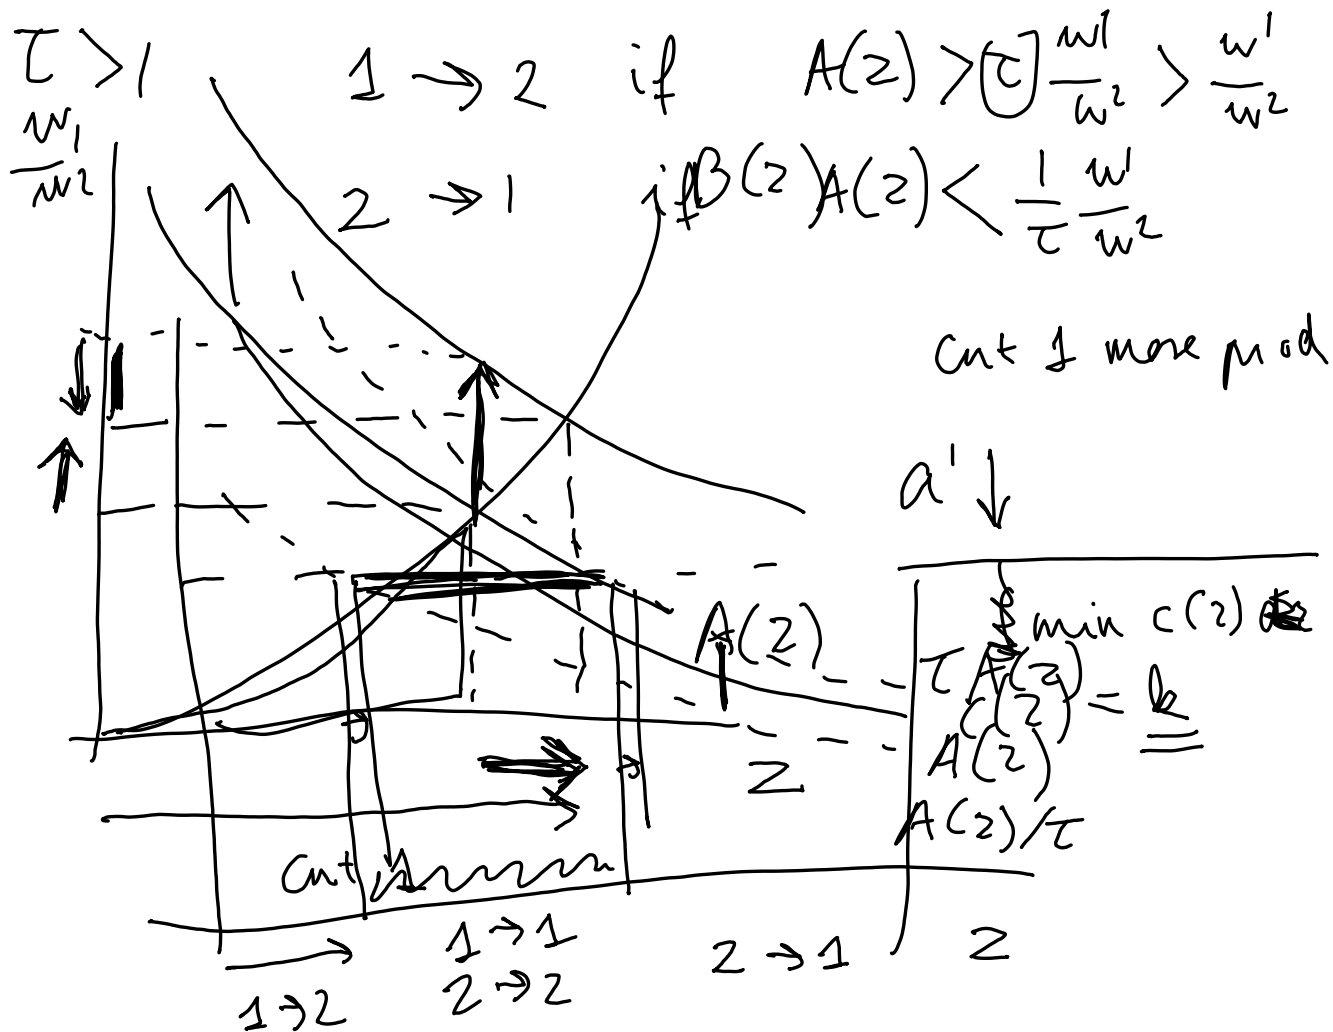 τ > 1
1 → 2 if A(z) > τ w¹/w² > w¹/w²
w₁/w²
2 → 1 if B(z) A(z) < 1/τ w¹/w²
cnt 1 more prod
a¹ ↓
min c(z)
A(z)
τ A(z)
c(z) = k
A(z)
z
A(z)/τ
cnt 1
1 → 1
2 → 1
z
2 → 2
1 → 2